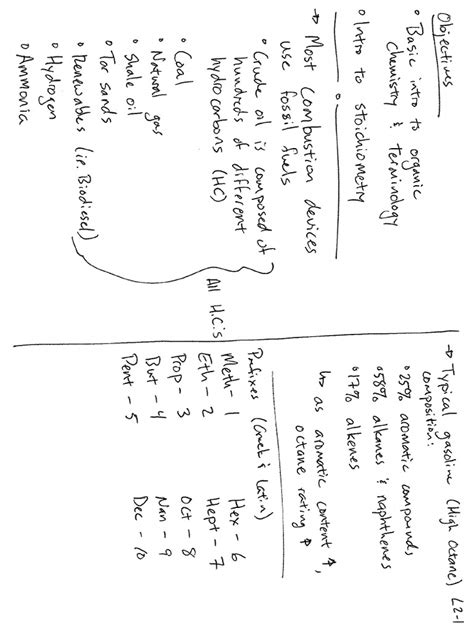 L2-1
Objectives
• Basic intro to organic
chemistry & terminology
• Intro to stoichiometry
→ Most combustion devices
use fossil fuels
• Crude oil is composed of
hundreds of different
hydrocarbons (HC)
• Coal
• Natural gas
• Shale oil
• Tar sands
• Renewables (ie. Biodiesel)
• Hydrogen
• Ammonia
All H.C.'s
→ Typical gasoline (High Octane)
composition:
• 25% aromatic compounds
• 58% alkanes & naphthenes
• 17% alkenes
↳ as aromatic content ↑,
octane rating ↑
Prefixes (Greek & Latin)
Meth - 1 Hex - 6
Eth - 2 Hept - 7
Prop - 3 Oct - 8
But - 4 Nan - 9
Pent - 5 Dec - 10